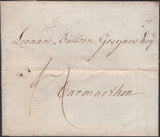 Leonard Bilson Gwynn Esq
Carmarthen